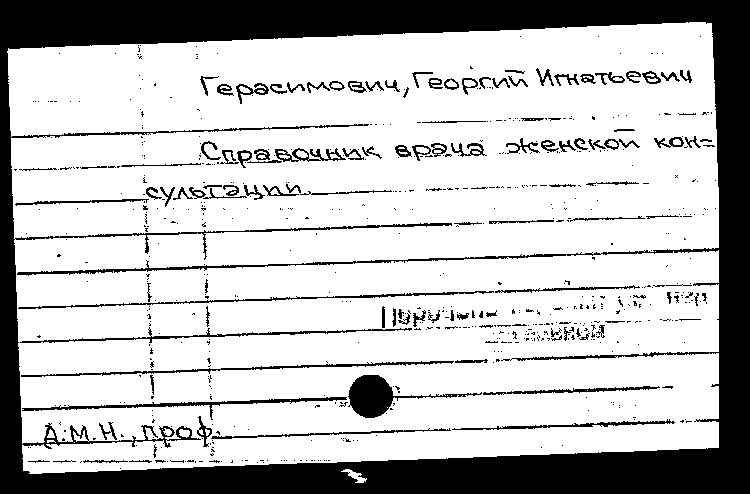 Герасимович, Георгий Игнатьевич
Справочник врача женской кон=
сультации.
Д.М.Н., проф.